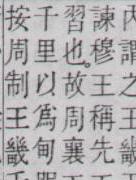 內謂之
諫穆王稱先
習也。故周襄
千里以為甸
按周制王畿